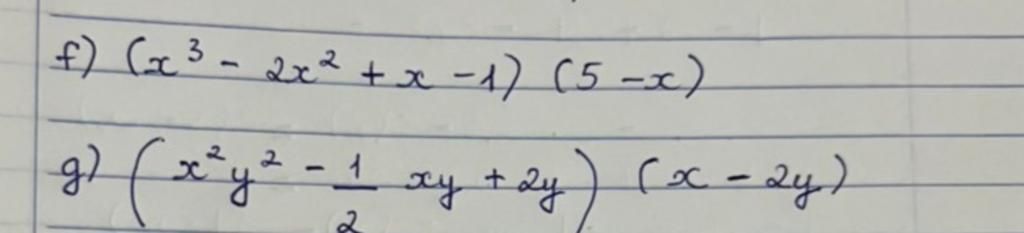 f) (x³ - 2x² + x - 1) (5 - x)
g) (x²y² - 1/2 xy + 2y) (x - 2y)